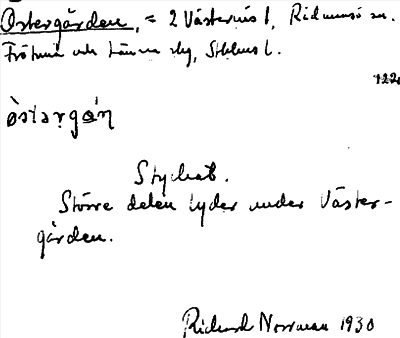 Östergården, = 2 Västerhus l, Ridmansö sn.
Frötuna och Länna skg, Sthlms l.
122
östərgɑ̀ɳ
Styckat.
Större delen lyder under Väster-
gården.
Richard Norrman 1930